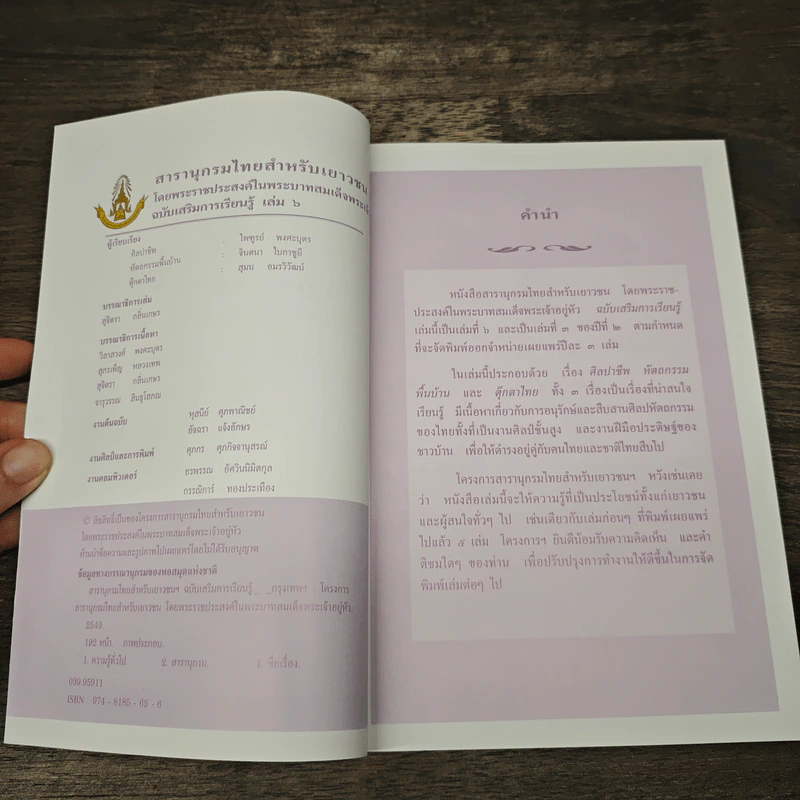 สารานุกรมไทยสำหรับเยาวชน
โดยพระราชประสงค์ในพระบาทสมเด็จพระเจ้า
ฉบับเสริมการเรียนรู้ เล่ม ๖
ผู้เรียบเรียง
ศิลปาชีพ : ไพฑูรย์ พงศะบุตร
หัตถกรรมพื้นบ้าน : จินตนา ใบกาซูยี
ตุ๊กตาไทย : สุมน อมรวิวัฒน์
บรรณาธิการเล่ม
สุจิตรา กลิ่นเกษร
บรรณาธิการเนื้อหา
วิลาสวงศ์ พงศะบุตร
สุภรเพ็ญ หลวงเทพ
สุจิตรา กลิ่นเกษร
จารุวรรณ สินธุโสภณ
งานต้นฉบับ หุสนีย์ ศุภพาณิชย์
อัจฉรา แจ้งอักษร
งานศิลป์และการพิมพ์ ศุภกร ศุภกิจอานุสรณ์
งานคอมพิวเตอร์ อรพรรณ อัศวินนิมิตกุล
กรรณิการ์ ทองประเทือง
© ลิขสิทธิ์เป็นของโครงการสารานุกรมไทยสำหรับเยาวชน
โดยพระราชประสงค์ในพระบาทสมเด็จพระเจ้าอยู่หัว
ห้ามนำข้อความและรูปภาพไปเผยแพร่โดยไม่ได้รับอนุญาต
ข้อมูลทางบรรณานุกรมของหอสมุดแห่งชาติ
สารานุกรมไทยสำหรับเยาวชนฯ ฉบับเสริมการเรียนรู้._ _กรุงเทพฯ : โครงการ
สารานุกรมไทยสำหรับเยาวชน โดยพระราชประสงค์ในพระบาทสมเด็จพระเจ้าอยู่หัว,
2549.
192 หน้า. ภาพประกอบ
1. ความรู้ทั่วไป 2. สารานุกรม. 1. ชื่อเรื่อง.
039.95911
ISBN 974 - 8185 - 65 - 6
คำนำ
หนังสือสารานุกรมไทยสำหรับเยาวชน โดยพระราช-
ประสงค์ในพระบาทสมเด็จพระเจ้าอยู่หัว ฉบับเสริมการเรียนรู้
เล่มนี้เป็นเล่มที่ ๖ และเป็นเล่มที่ ๓ ของปีที่ ๒ ตามกำหนด
ที่จะจัดพิมพ์ออกจำหน่ายเผยแพร่ปีละ ๓ เล่ม
ในเล่มนี้ประกอบด้วย เรื่อง ศิลปาชีพ หัตถกรรม
พื้นบ้าน และ ตุ๊กตาไทย ทั้ง ๓ เรื่องเป็นเรื่องที่น่าสนใจ
เรียนรู้ มีเนื้อหาเกี่ยวกับการอนุรักษ์และสืบสานศิลปหัตถกรรม
ของไทยทั้งที่เป็นงานศิลป์ชั้นสูง และงานฝีมือประดิษฐ์ของ
ชาวบ้าน เพื่อให้ดำรงอยู่คู่กับคนไทยและชาติไทยสืบไป
โครงการสารานุกรมไทยสำหรับเยาวชนฯ หวังเช่นเคย
ว่า หนังสือเล่มนี้จะให้ความรู้ที่เป็นประโยชน์ทั้งแก่เยาวชน
และผู้สนใจทั่วๆ ไป เช่นเดียวกับเล่มก่อนๆ ที่พิมพ์เผยแพร่
ไปแล้ว ๕ เล่ม โครงการฯ ยินดีน้อมรับความคิดเห็น และคำ
ติชมใดๆ ของท่าน เพื่อปรับปรุงการทำงานให้ดีขึ้นในการจัด
พิมพ์เล่มต่อๆ ไป